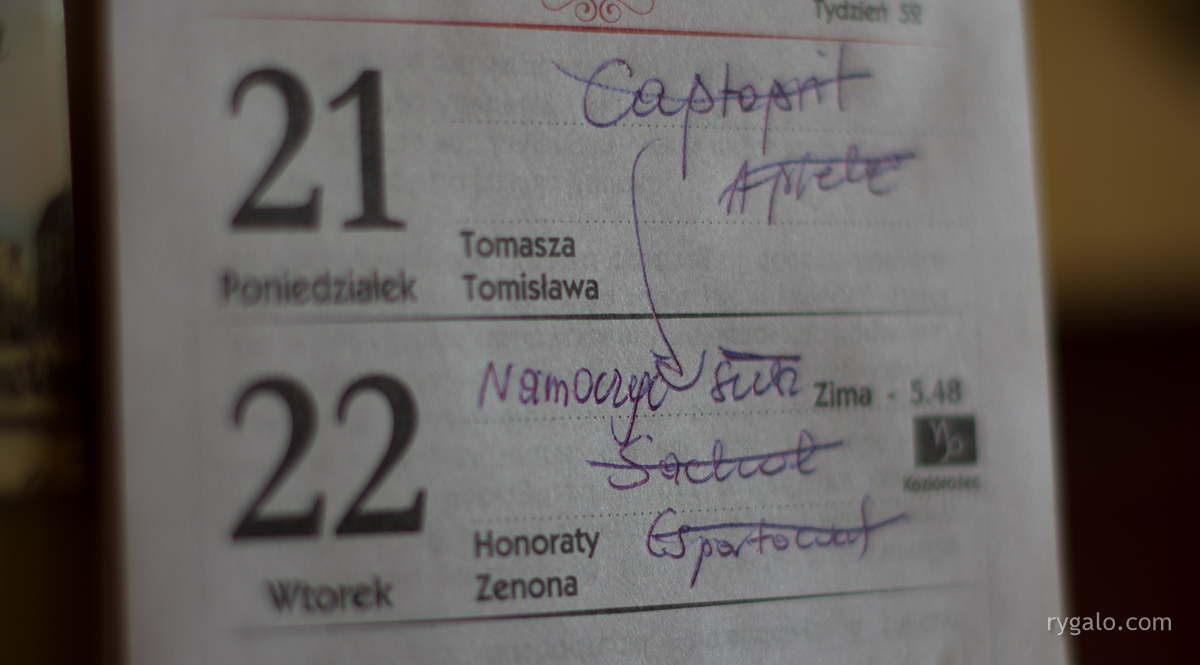 Tydzień 52
21
Captopril
Apteka
Tomasza
Poniedziałek
Tomisława
Namoczyć
Zima - 5.48
22
Koziorożec
Honoraty
Zenona
Wtorek
rygalo.com